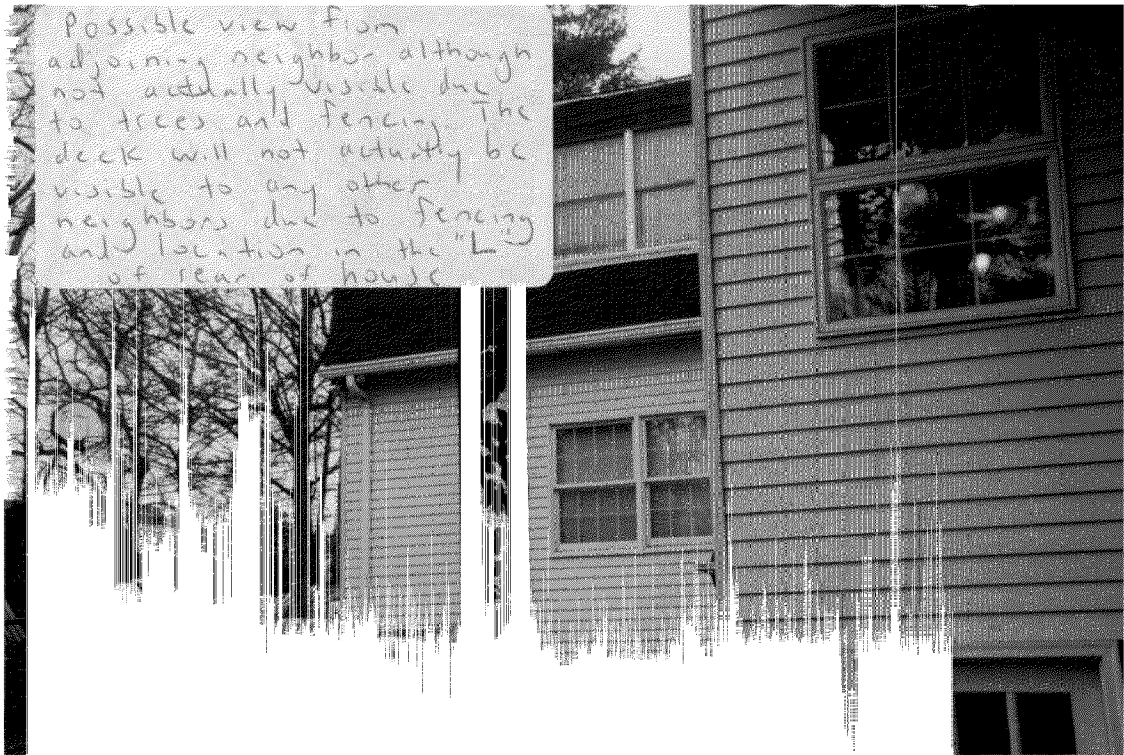 Possible view from
adjoining neighbor although
not actually visible due
to trees and fencing The
deck will not actually be
visible to any other
neighbors due to fencing
and location in the "L"
of rear of house